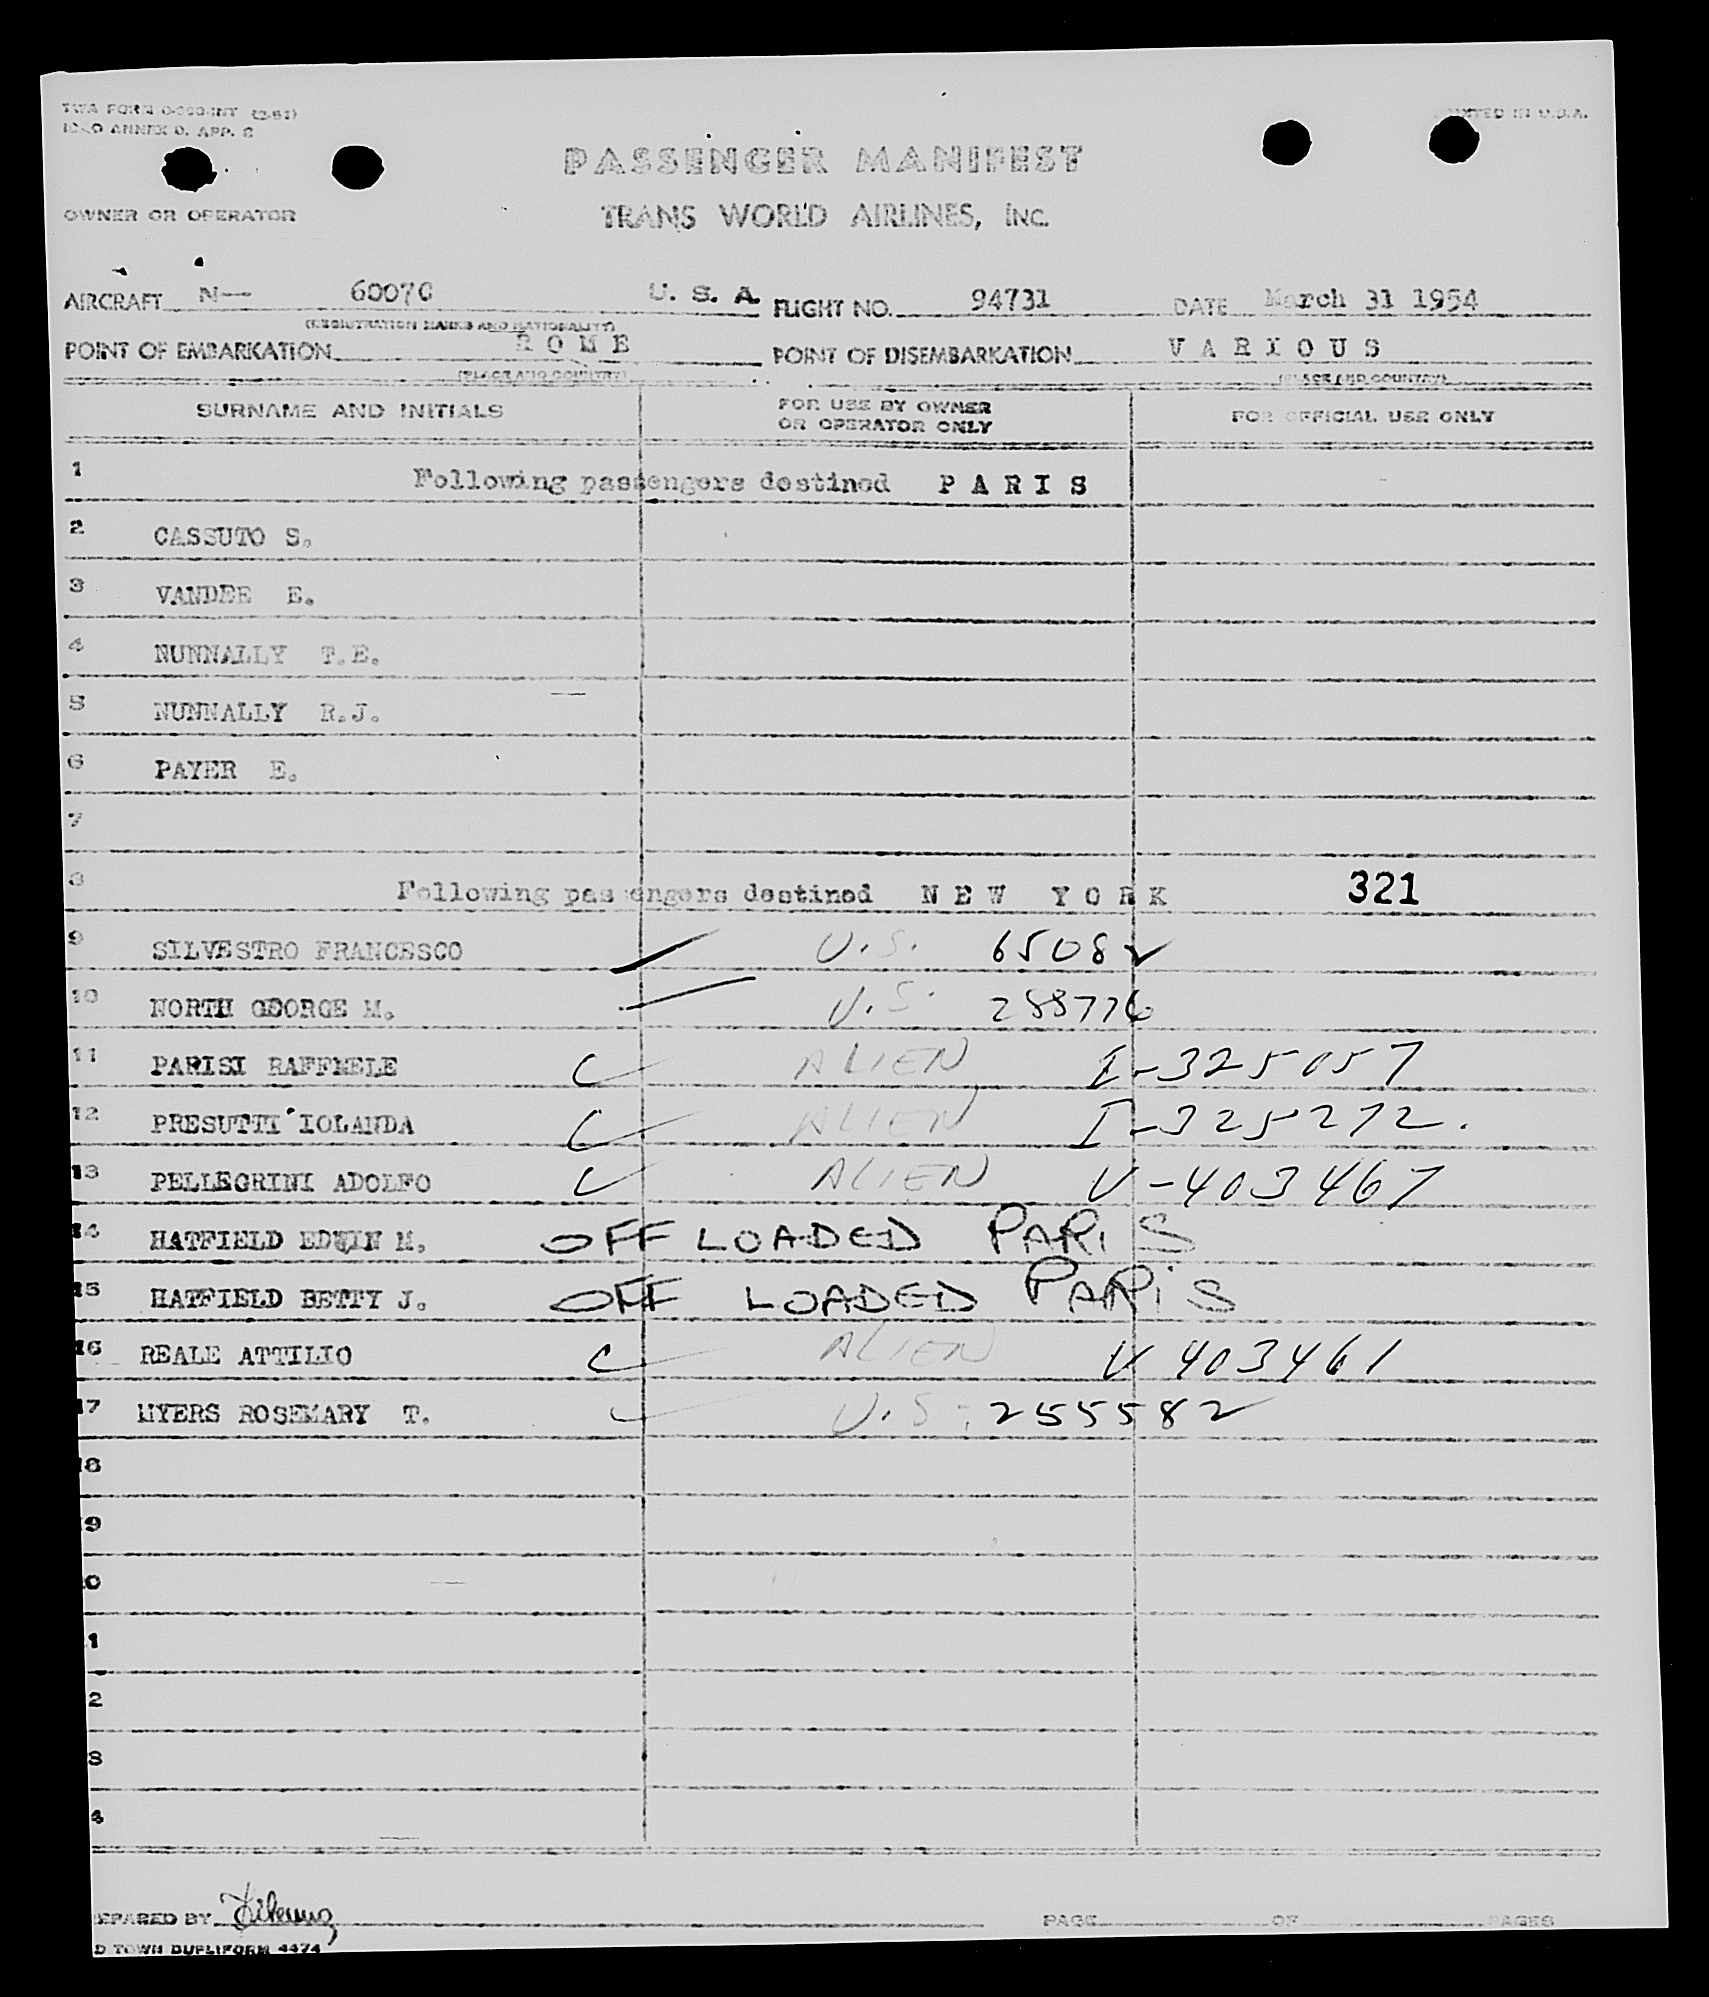 TWA FORM
ICAO ANNEX 9, APP. 2
PRINTED IN U.S.A.
PASSENGER MANIFEST
OWNER OR OPERATOR
TRANS WORLD AIRLINES, INC.
AIRCRAFT N— 6007C U. S. A. FLIGHT NO. 94731 DATE March 31 1954
(REGISTRATION MARKS AND NATIONALITY)
POINT OF EMBARKATION R O M E POINT OF DISEMBARKATION V A R I O U S
(PLACE AND COUNTRY) (PLACE AND COUNTRY)
SURNAME AND INITIALS FOR USE BY OWNER OR OPERATOR ONLY FOR OFFICIAL USE ONLY
1 Following passengers destined P A R I S
2 CASSUTO S.
3 VANDEE E.
4 NUNNALLY T.E.
5 NUNNALLY R.J.
6 PAYER E.
7
8 Following passengers destined N E W Y O R K 321
9 SILVESTRO FRANCESCO U.S. 65082
10 NORTH GEORGE M. U.S. 288776
11 PARISI RAFFAELE ALIEN I-325057
12 PRESUTTI IOLANDA ALIEN I-325272.
13 PELLEGRINI ADOLFO ALIEN V-403467
14 HATFIELD EDWIN M. OFF LOADED PARIS
15 HATFIELD BETTY J. OFF LOADED PARIS
16 REALE ATTILIO ALIEN V 403461
17 MYERS ROSEMARY T. U.S. 255582
18
9
0
1
2
3
4
EPARED BY PAGE OF PAGES
D TOWN DUPLIFORM 4474